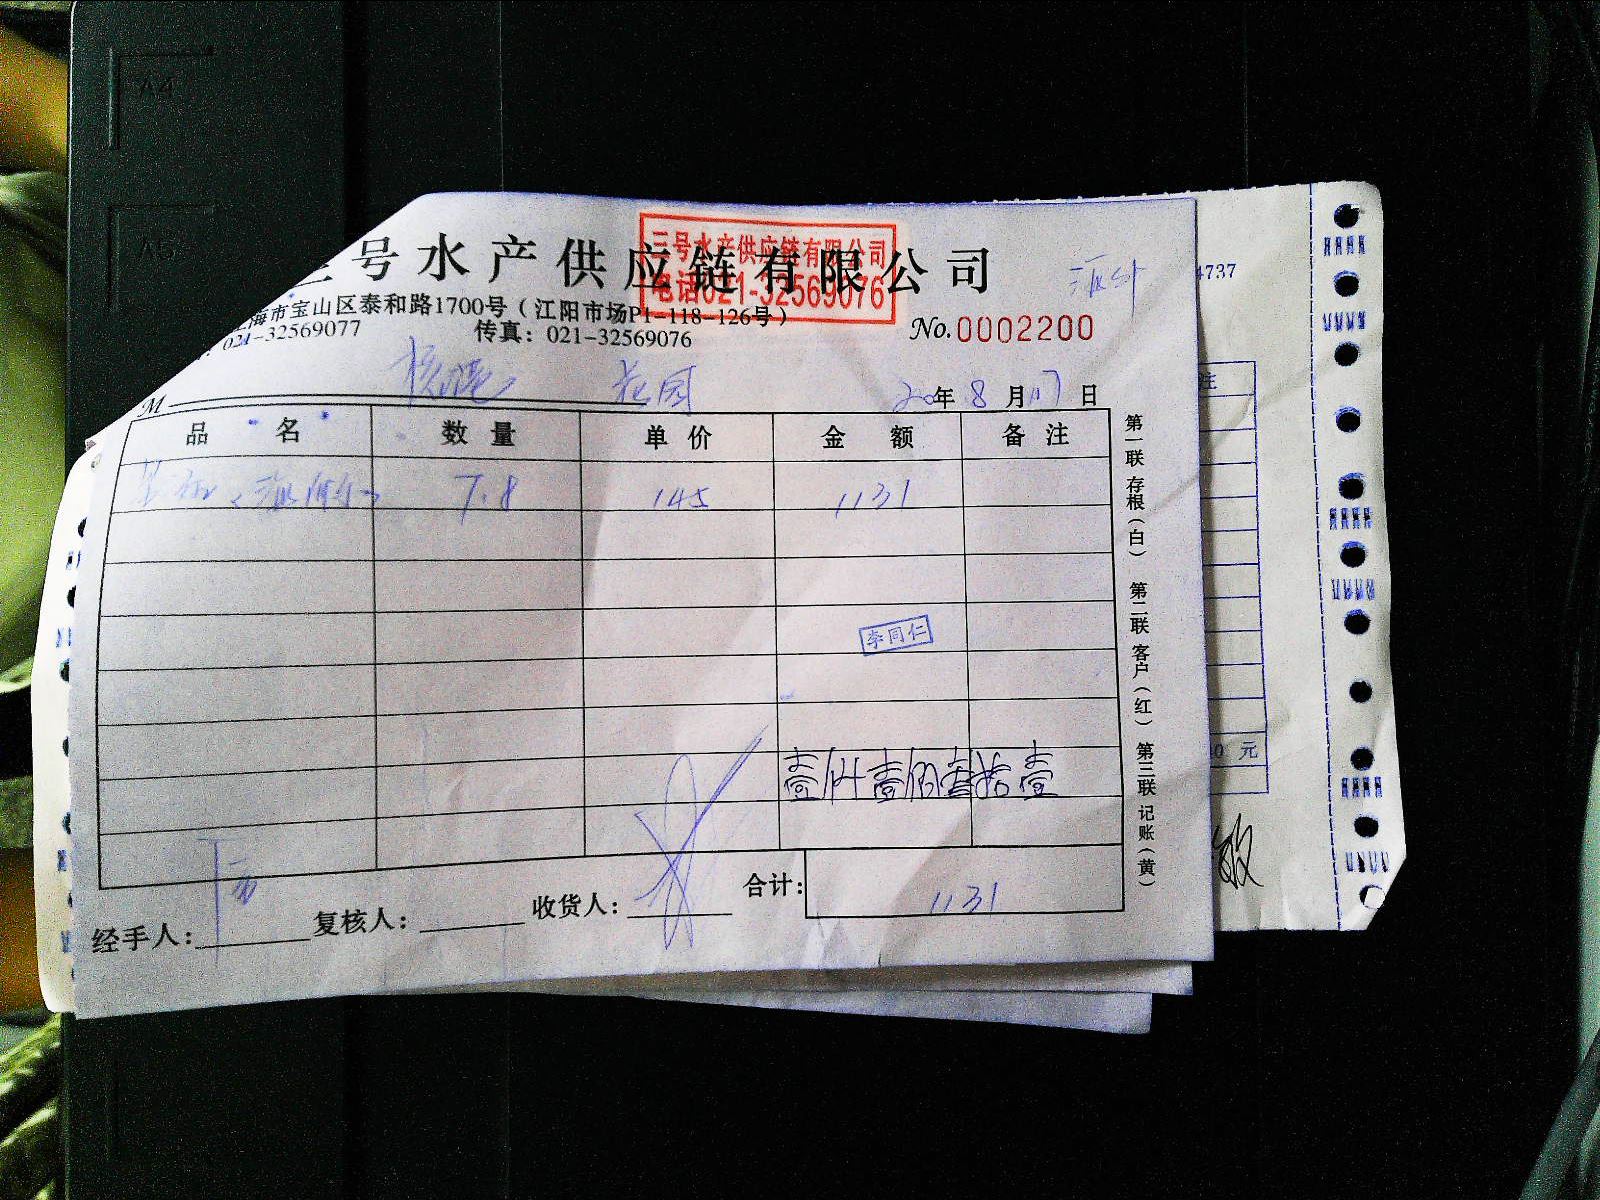 三号水产供应链有限公司
三号水产供应链有限公司
电话021-32569076
上海市宝山区泰和路1700号（江阳市场P1-118-126号）
021-32569077 传真：021-32569076
No.0002200
4737
M
花园
20年8月17日
品名 数量 单价 金额 备注
7.8 145 1131
李同仁
壹仟壹佰叁拾壹
合计： 1131
经手人： 复核人： 收货人：
第一联存根（白） 第二联客户（红） 第三联记账（黄）
注
0 元
敏
A4
A5